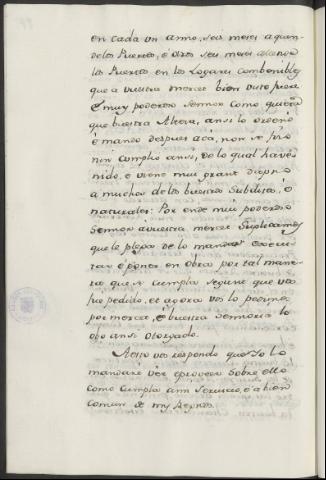 en cada un anno, seis meses aquen
delos Puertos, é otros seis meses allende
los Puertos en los Logares combenibles
que a vuestra merced bien visto fuere
E muy poderoso Sennor como quiera
que buestra Alteza, ansi lo ordenó
é mando despues acá, non se fizo
nin cumplio ansi, de lo qual ha ve-
nido, é viene muy grant dapno
a muchos delos buestros Subditos, é
naturales: Por ende muy poderoso
Sennor a vuestra merced Suplicamos
que le plega de lo mandar execu-
tar é poner en obra por tal mane-
ra que se cumpla segunt que vos
fue pedido, et agora vos lo pedimos
por merced, é buestra Sennoria lo
obo ansi otorgado.
Aesto vos respondo que Yo lo
mandaré vér é proveer sobre ello
como cumpla a mi Servicio, é a bien
comun de mis Regnos.